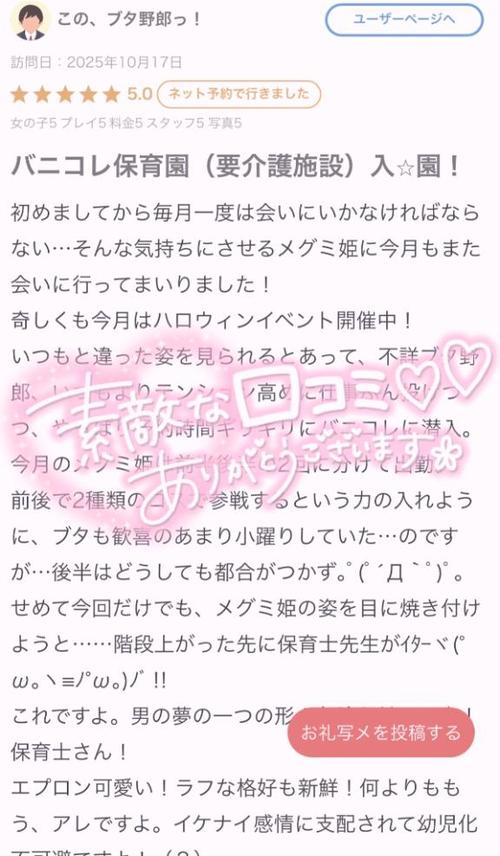 この、ブタ野郎っ！
ユーザーページへ
訪問日：2025年10月17日
★★★★★ 5.0 ネット予約で行きました
女の子5 プレイ5 料金5 スタッフ5 写真5
バニコレ保育園（要介護施設）入☆園！
初めましてから毎月一度は会いにいかなければなら
ない…そんな気持ちにさせるメグミ姫に今月もまた
会いに行ってまいりました！
奇しくも今月はハロウィンイベント開催中！
いつもと違った姿を見られるとあって、不詳ブタ野
郎、いつもよりテンション高めに仕事
つ、 時間ギリギリにバニコレに潜入。
素敵な口コミ♡♡
ありがとうございます
今月のメグミ姫は前 2回に分けて出勤
前後で2種類の で参戦するという力の入れよう
に、ブタも歓喜のあまり小躍りしていた…のです
が…後半はどうしても都合がつかず｡ﾟ(ﾟ´Д｀ﾟ)ﾟ｡
せめて今回だけでも、メグミ姫の姿を目に焼き付け
ようと……階段上がった先に保育士先生がｲﾀｰヾ(ﾟ
ω｡ヽ≡ﾉﾟω｡)ﾉﾞ!!
これですよ。男の夢の一つの形
お礼写メを投稿する
保育士さん！
エプロン可愛い！ラフな格好も新鮮！何よりもも
う、アレですよ。イケナイ感情に支配されて幼児化